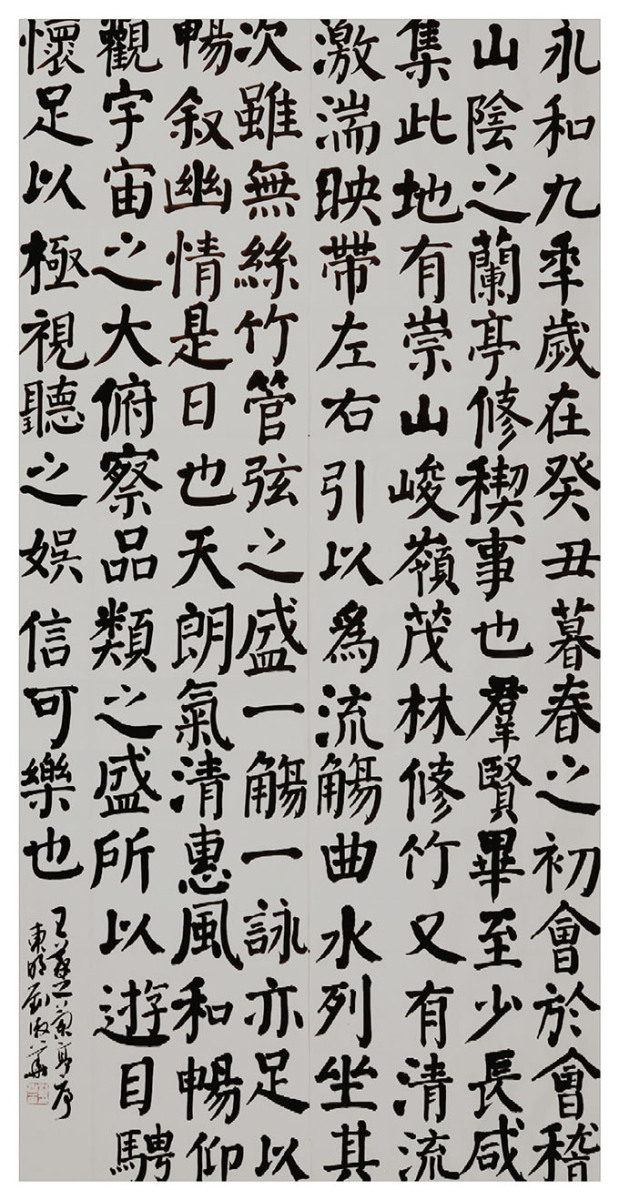 永和九年歲在癸丑暮春之初會於會稽
山陰之蘭亭修稧事也羣賢畢至少長咸
集此地有崇山峻嶺茂林修竹又有清流
激湍映帶左右引以爲流觴曲水列坐其
次雖無絲竹管弦之盛一觴一詠亦足以
暢叙幽情是日也天朗氣清惠風和暢仰
觀宇宙之大俯察品類之盛所以遊目騁
懷足以極視聽之娛信可樂也
王羲之蘭亭序
東明劉